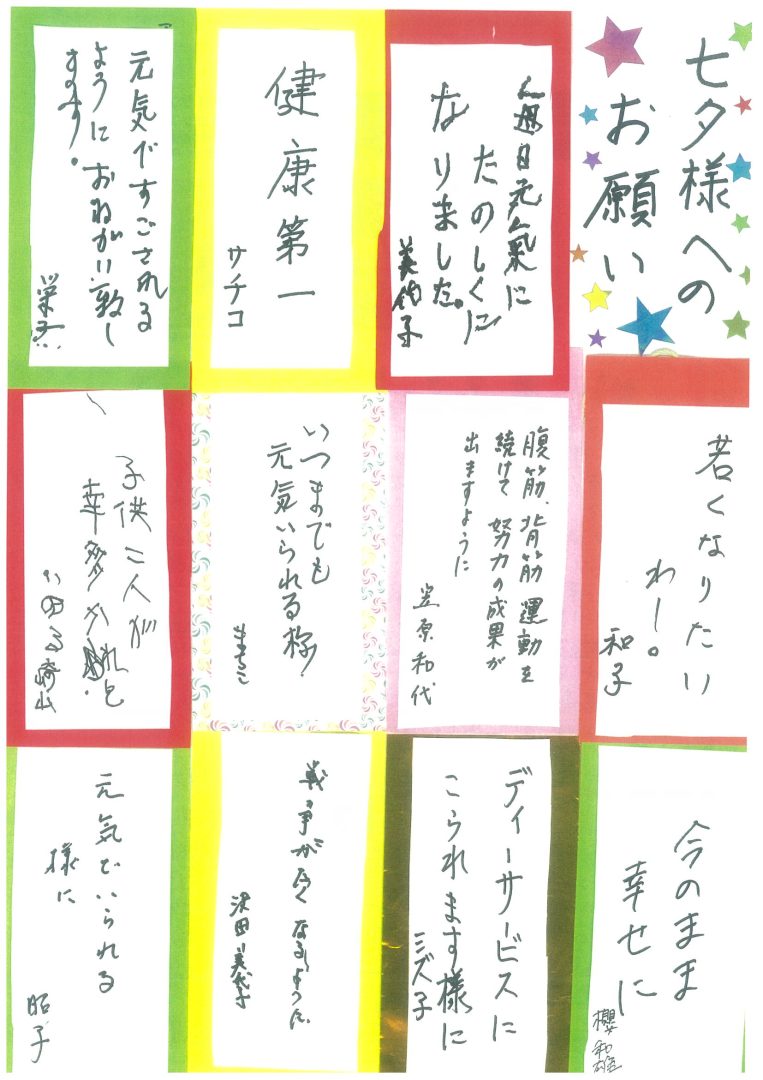 七夕様への
お願い
毎日元気に
たのしくに
なりました。
美佐子
健康第一
サチコ
元気ですごされる
ようにおねがい致し
ます。
若くなりたい
わー。
和子
腹筋、背筋運動を
続けて努力の成果が
出ますように
笠原和代
いつまでも
元気いられる様
まちこ
子供二人が
幸多かれと
今のまま
幸せに
櫻和雄
ディーサービスに
こられます様に
ミズ子
戦争が
なるように
沢田美代子
元気でいられる
様に
昭子